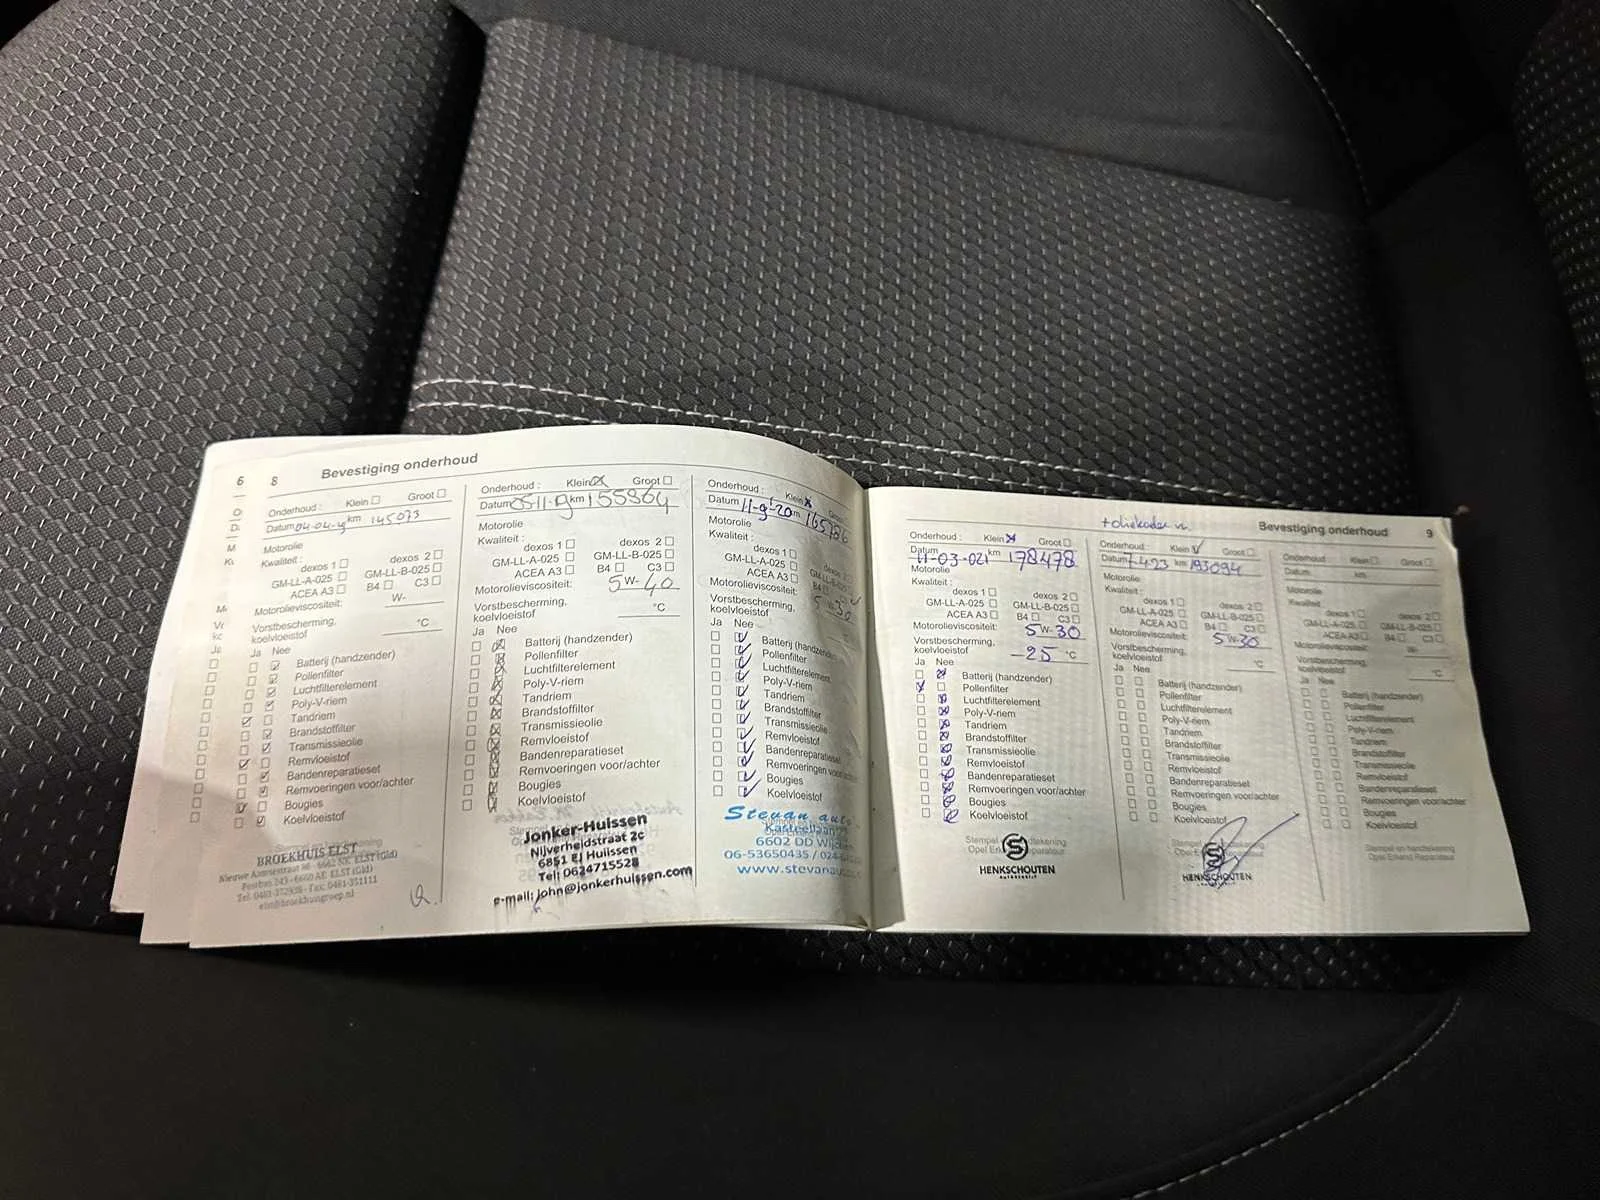 6
8
Bevestiging onderhoud
Onderhoud : Klein Groot
Datum 04-04-19 km 145073
Motorolie
Kwaliteit : dexos 1 dexos 2
GM-LL-A-025 GM-LL-B-025
ACEA A3 B4 C3
Motorolieviscositeit: W-
Vorstbescherming,
koelvloeistof °C
Ja Nee
Batterij (handzender)
Pollenfilter
Luchtfilterelement
Poly-V-riem
Tandriem
Brandstoffilter
Transmissieolie
Remvloeistof
Bandenreparatieset
Remvoeringen voor/achter
Bougies
Koelvloeistof
BROEKHUIS ELST
Nieuwe Aamsestraat
ELST (Gld)
Onderhoud : Klein Groot
Datum 05-11-19 km 155864
Motorolie
Kwaliteit : dexos 1 dexos 2
GM-LL-A-025 GM-LL-B-025
ACEA A3 B4 C3
Motorolieviscositeit: 5 W- 40
Vorstbescherming,
koelvloeistof °C
Ja Nee
Batterij (handzender)
Pollenfilter
Luchtfilterelement
Poly-V-riem
Tandriem
Brandstoffilter
Transmissieolie
Remvloeistof
Bandenreparatieset
Remvoeringen voor/achter
Bougies
Koelvloeistof
Jonker-Huissen
Nijverheidstraat 2c
6851 EJ Huissen
Tel: 0624715528
e-mail: john@jonkerhuissen.com
Onderhoud : Klein Groot
Datum 11-9-20 165786
Motorolie
Kwaliteit : dexos 1 dexos 2
GM-LL-A-025 GM-LL-B-025
ACEA A3 B4
Motorolieviscositeit: 5 W-30
Vorstbescherming,
koelvloeistof °C
Ja Nee
Batterij (handzender)
Pollenfilter
Luchtfilterelement
Poly-V-riem
Tandriem
Brandstoffilter
Transmissieolie
Remvloeistof
Bandenreparatieset
Remvoeringen voor/achter
Bougies
Koelvloeistof
Stevan auto
Kasteellaan
6602 DD Wijchen
06-53650435 / 024-
www.stevanau
Bevestiging onderhoud
9
Onderhoud : Klein Groot
Datum 11-03-021 km 178478
Motorolie
Kwaliteit : dexos 1 dexos 2
GM-LL-A-025 GM-LL-B-025
ACEA A3 B4 C3
Motorolieviscositeit: 5 W- 30
Vorstbescherming,
koelvloeistof -25 °C
Ja Nee
Batterij (handzender)
Pollenfilter
Luchtfilterelement
Poly-V-riem
Tandriem
Brandstoffilter
Transmissieolie
Remvloeistof
Bandenreparatieset
Remvoeringen voor/achter
Bougies
Koelvloeistof
HENKSCHOUTEN
Onderhoud : Klein Groot
Datum 7-4-23 km 193094
Motorolie
Kwaliteit : dexos 1 dexos 2
GM-LL-A-025 GM-LL-B-025
ACEA A3 B4 C3
Motorolieviscositeit: 5 W- 30
Vorstbescherming,
koelvloeistof °C
Ja Nee
Batterij (handzender)
Pollenfilter
Luchtfilterelement
Poly-V-riem
Tandriem
Brandstoffilter
Transmissieolie
Remvloeistof
Bandenreparatieset
Remvoeringen voor/achter
Bougies
Koelvloeistof
HENKSCHOUTEN
Onderhoud : Klein Groot
Datum km
Motorolie
Kwaliteit : dexos 1 dexos 2
GM-LL-A-025 GM-LL-B-025
ACEA A3 B4 C3
Motorolieviscositeit: W-
Vorstbescherming,
koelvloeistof °C
Ja Nee
Batterij (handzender)
Pollenfilter
Luchtfilterelement
Poly-V-riem
Tandriem
Brandstoffilter
Transmissieolie
Remvloeistof
Bandenreparatieset
Remvoeringen voor/achter
Bougies
Koelvloeistof
Stempel en handtekening
Opel Erkend Reparateur